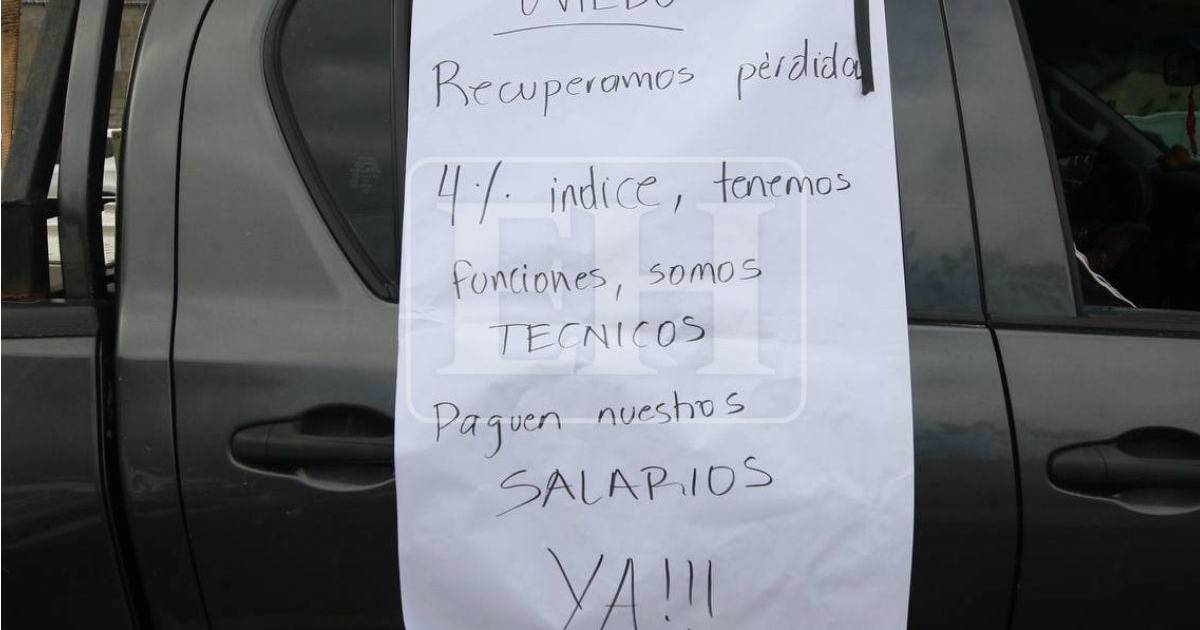 OVIEDO
Recuperamos pérdida
4% indice, tenemos
funciones, somos
TECNICOS
Paguen nuestros
SALARIOS
YA!!!
EH